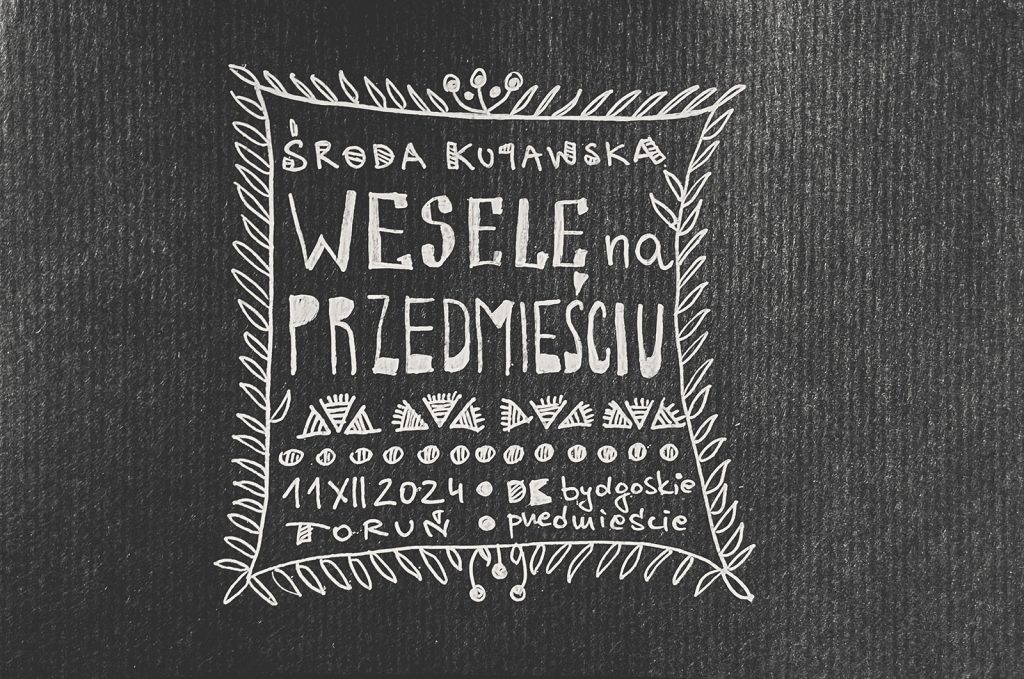 ŚRODA KUJAWSKA
WESELE na
PRZEDMIEŚCIU
11 XII 2024 • DK bydgoskie
TORUŃ • przedmieście